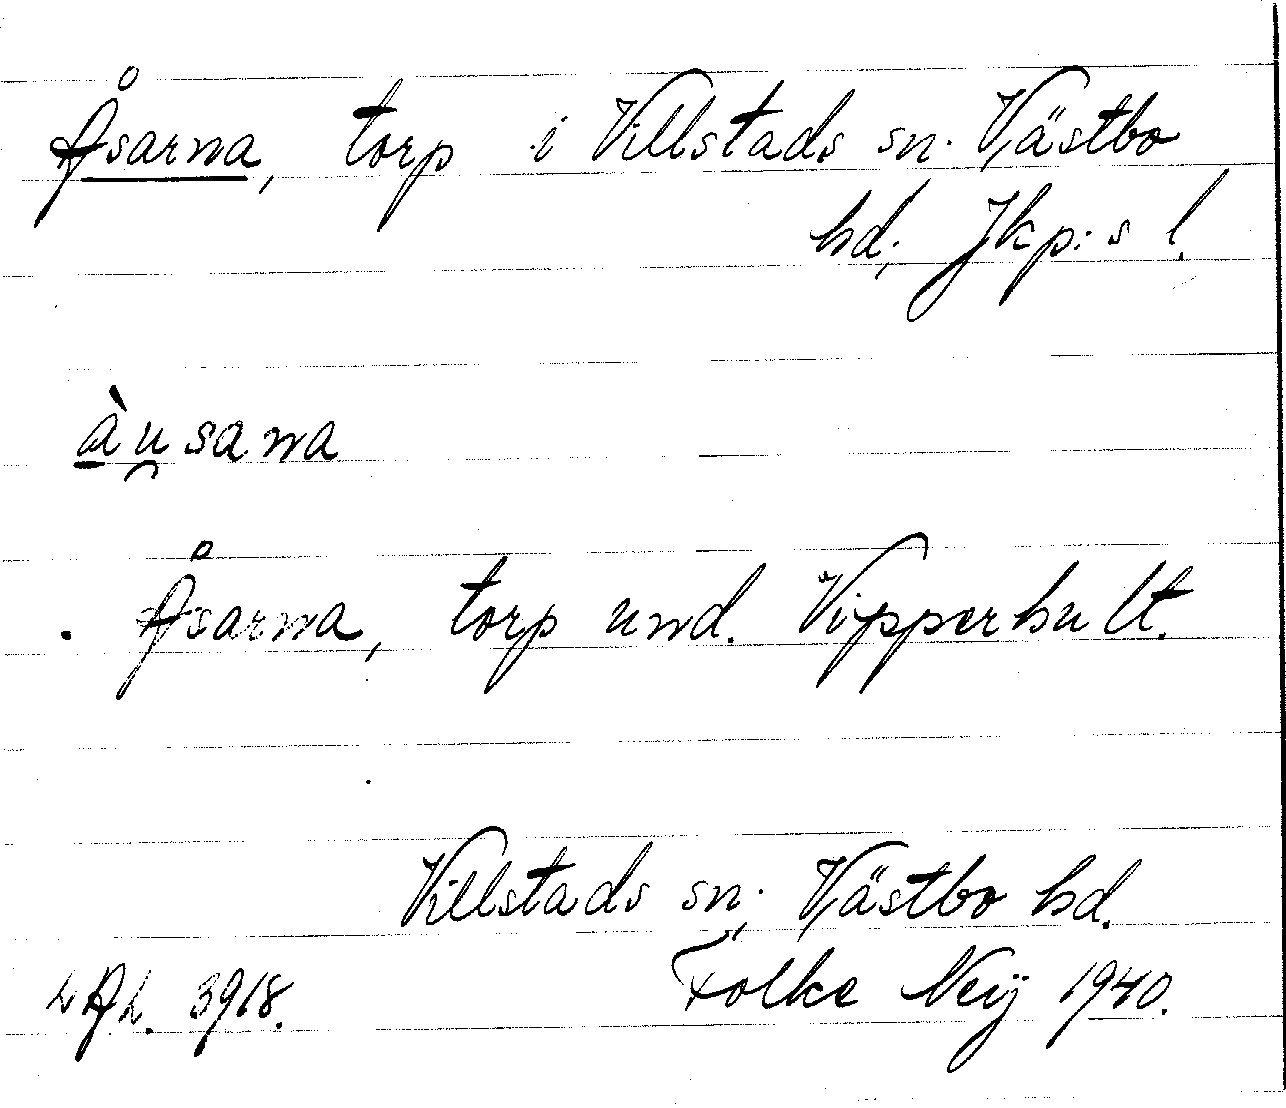 Åsarna, torp i Villstads sn. Västbo
hd, Jkp:s l.
àu̯sana
Åsarna, torp und. Vipperhult.
Villstads sn, Västbo hd.
LAL. 3918.
Folke Neij 1940.